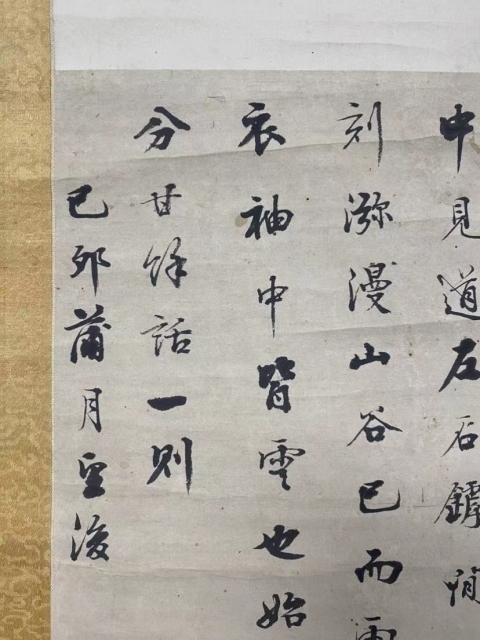 中見道左石罅
刻瀰漫山谷已而
衣袖中皆雲也始
分甘餘話一則
己卯蒲月望後